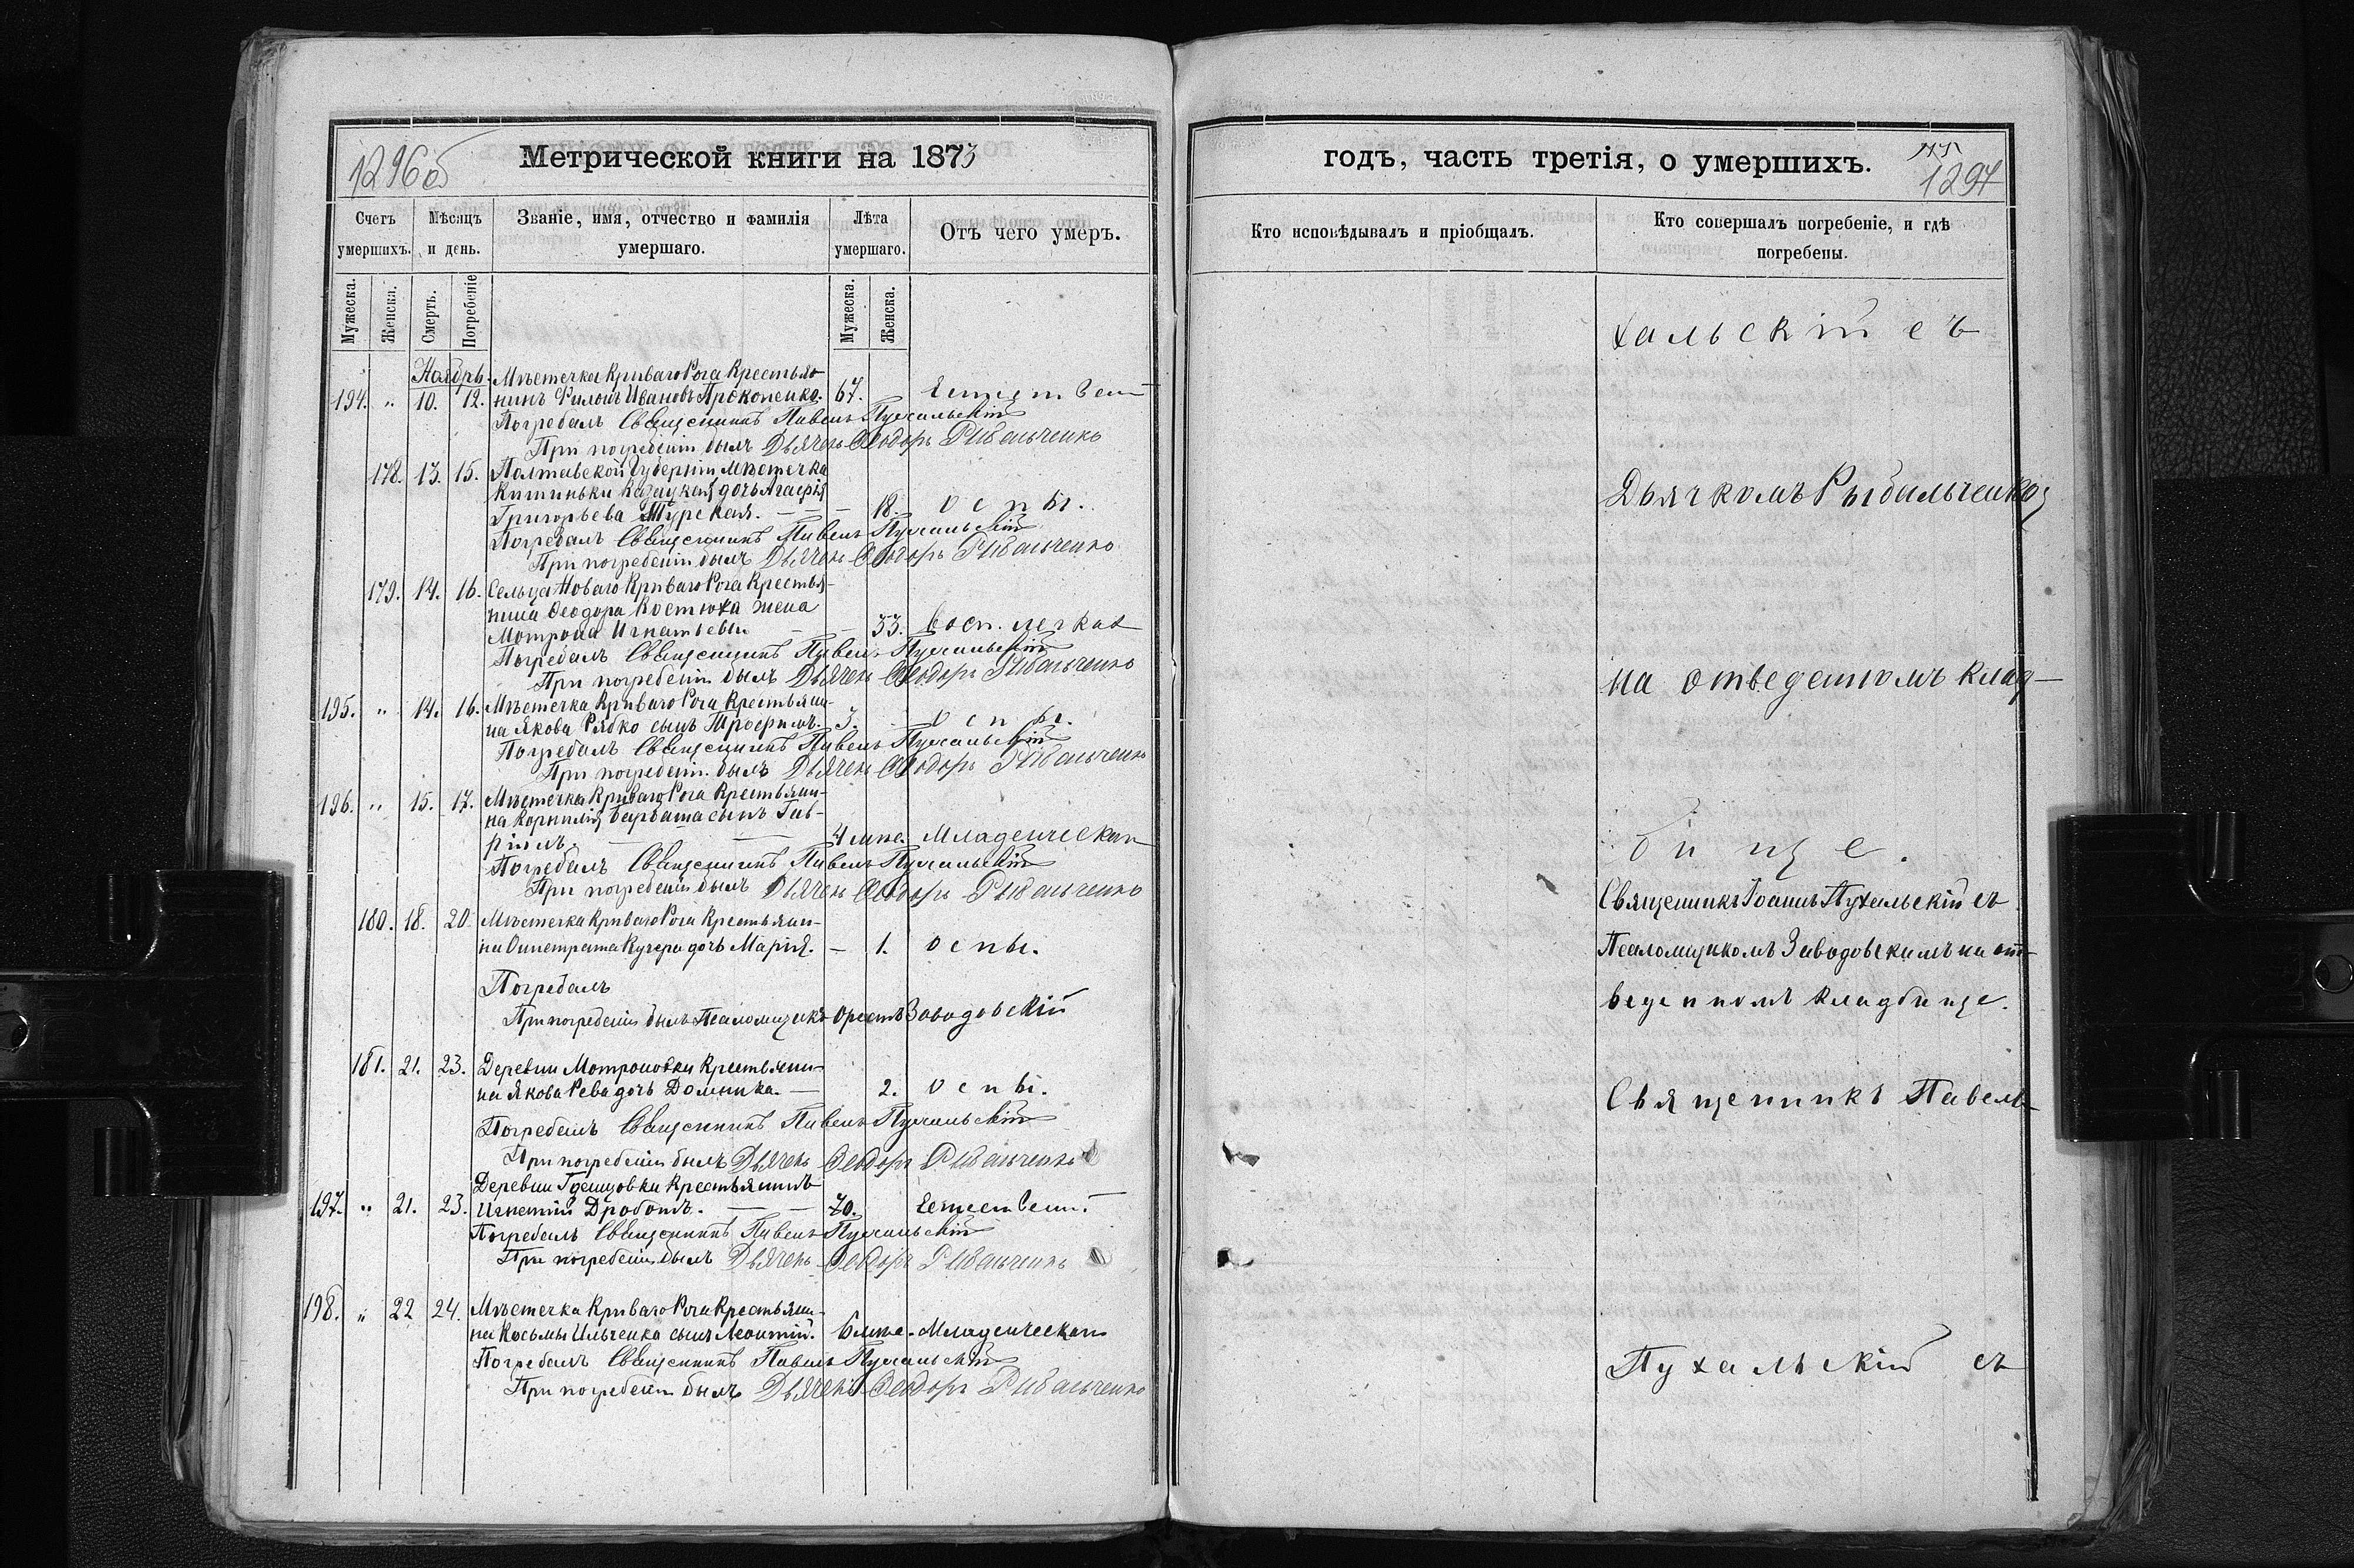 1296 об
Метрической книги на 1873
Счетъ умершихъ.
Мѣсяцъ и день.
Званіе, имя, отчество и фамилія умершаго.
Лѣта умершаго.
Отъ чего умеръ.
Мужеска.
Женска.
Смерть.
Погребеніе
Мужеска.
Женска.
Ноябрь. Мѣстечка Криваго Рога Крестья-
194. " 10. 12. нинъ Филонъ Ивановъ Прокопенко. 67. Естествен
Погребалъ Священникъ Павелъ Пухальскій
При погребеніи былъ Дьячекъ Ѳеодоръ Рыбальченко
178. 13. 15. Полтавской Губерніи мѣстечка
Китиньки Казацкая дочь Агафія
Григорьева Турская. 18. оспы.
Погребалъ Священникъ Павелъ Пухальскій
При погребеніи былъ Дьячекъ Ѳеодоръ Рыбальченко
179. 14. 16. Сельца Новаго Криваго Рога Крестья-
нина Ѳеодора Костюка жена
Мотрона Игнатьевы 33. восп. легках
Погребалъ Священникъ Павелъ Пухальскій
При погребеніи былъ Дьячекъ Ѳеодоръ Рыбальченко
195. " 14. 16. Мѣстечка Криваго Рога Крестьяни-
на Якова Рябко сынъ Трофимъ. 3. оспы.
Погребалъ Священникъ Павелъ Пухальскій
При погребеніи былъ Дьячекъ Ѳеодоръ Рыбальченко
196. " 15. 17. Мѣстечка Криваго Рога Крестьяни-
на Корнилія Барвата сынъ Гав-
ріилъ. 4 мце. Младенческая
Погребалъ Священникъ Павелъ Пухальскій
При погребеніи былъ Дьячекъ Ѳеодоръ Рыбальченко
180. 18. 20 Мѣстечка Криваго Рога Крестьяни-
на Онистрата Кучера дочь Марія. 1. оспы.
Погребалъ
При погребеніи былъ Псаломщикъ Орестъ Заводовскій
181. 21. 23. Деревни Мотроновки Крестьяни-
на Якова Рева дочь Домника. 2. оспы.
Погребалъ Священникъ Павелъ Пухальскій
При погребеніи былъ Дьячекъ Ѳеодоръ Рыбальченко
Деревни Крестьянинъ
197. " 21. 23. Игнатій Дроботъ. 70. Естествен.
Погребалъ Священникъ Павелъ Пухальскій
При погребеніи былъ Дьячекъ Ѳеодоръ Рыбальченко
198. " 22 24. Мѣстечка Криваго Рога Крестьяни-
на Косьмы Ильченка сынъ Леонтій. 6 мце. Младенческая
Погребалъ Священникъ Павелъ Пухальскій
При погребеніи былъ Дьячекъ Ѳеодоръ Рыбальченко
годъ, часть третія, о умершихъ.
1297
Кто исповѣдывалъ и пріобщалъ.
Кто совершалъ погребеніе, и гдѣ погребены.
хальскій съ
Дьячкомъ Рыбальченко,
на отведенномъ клад-
бище.
Священникъ Іоаннъ Пухальскій съ
Псаломщикомъ Заводовскимъ на от-
веденномъ кладбище.
Священникъ Павелъ
Пухальскій съ